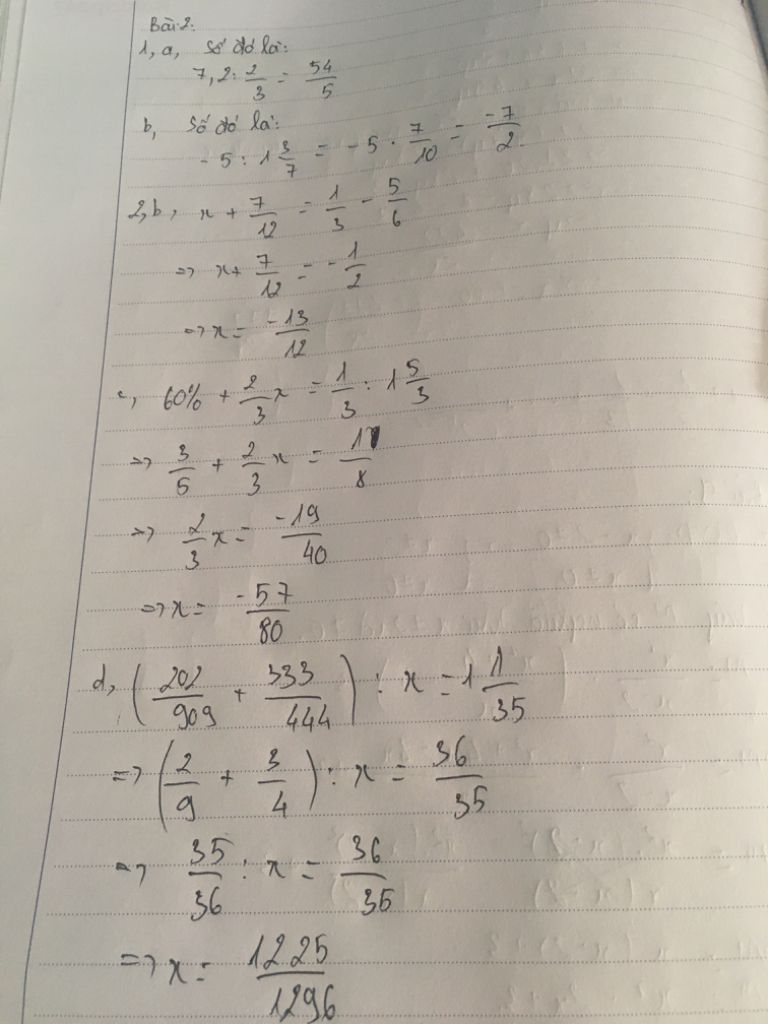 Bài 2:
1, a, Số đó là:
7,2 : 2/3 = 54/5
b, Số đó là:
- 5 : 1 3/7 = - 5 . 7/10 = -7/2.
2, b, x + 7/12 = 1/3 - 5/6
=> x + 7/12 = - 1/2
=> x = -13/12
c, 60% + 2/3 x = 1/3 : 1 5/3
=> 3/5 + 2/3 x = 1/8
=> 2/3 x = -19/40
=> x = -57/80
d, (202/909 + 333/444) : x = 1 1/35
=> (2/9 + 3/4) : x = 36/35
=> 35/36 : x = 36/35
=> x = 1225/1296